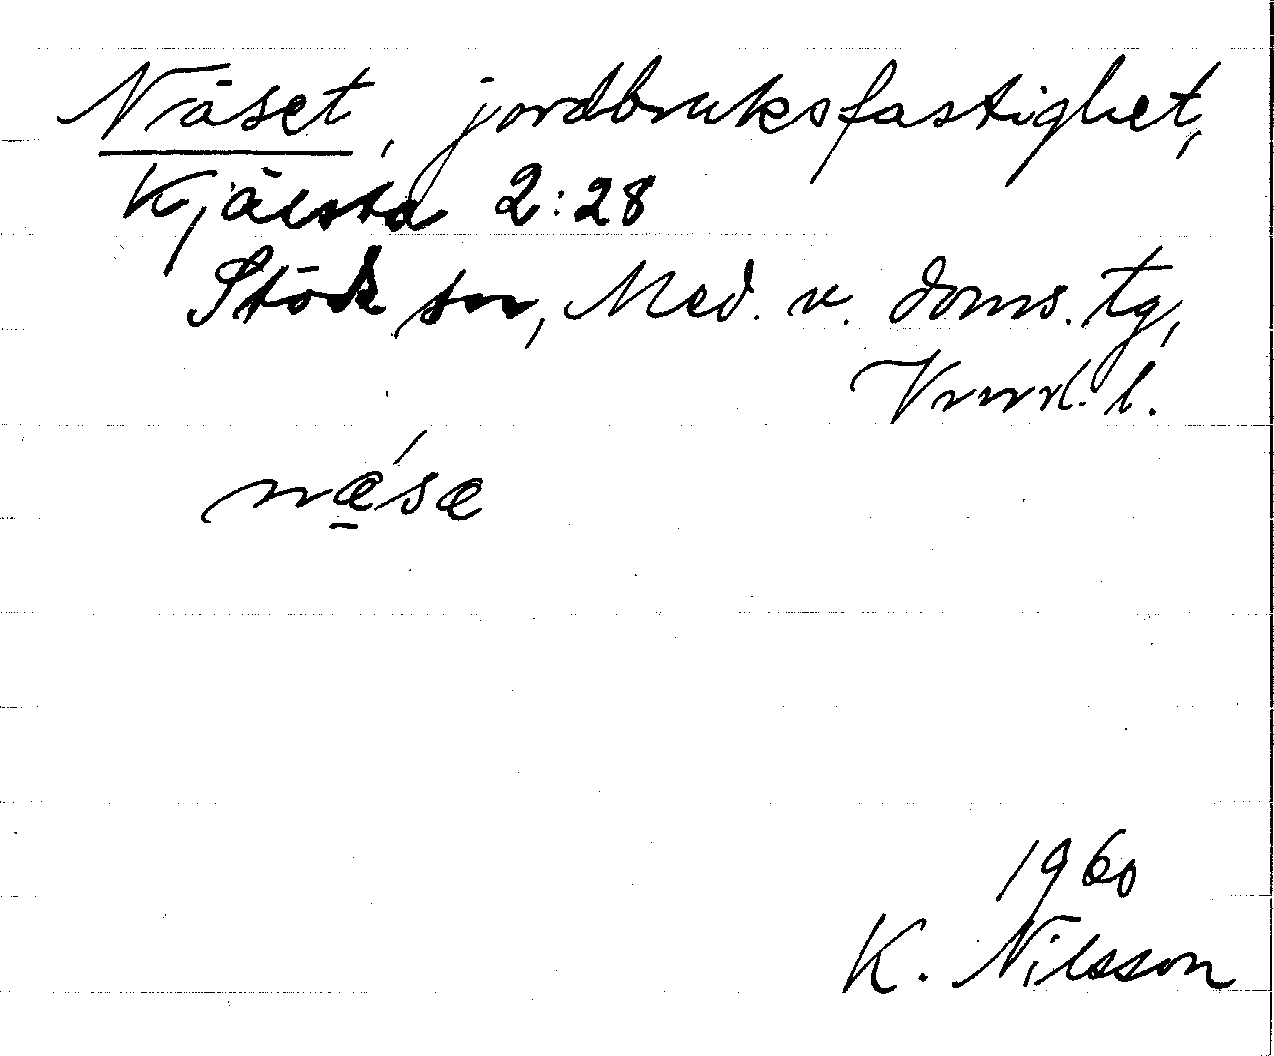 Näset, jordbruksfastighet,
Kjälsta 2:28
Stöde sn, Med. v. doms. tg,
Vnrrl. l.
næ̱´sæ
1960
K. Nilsson